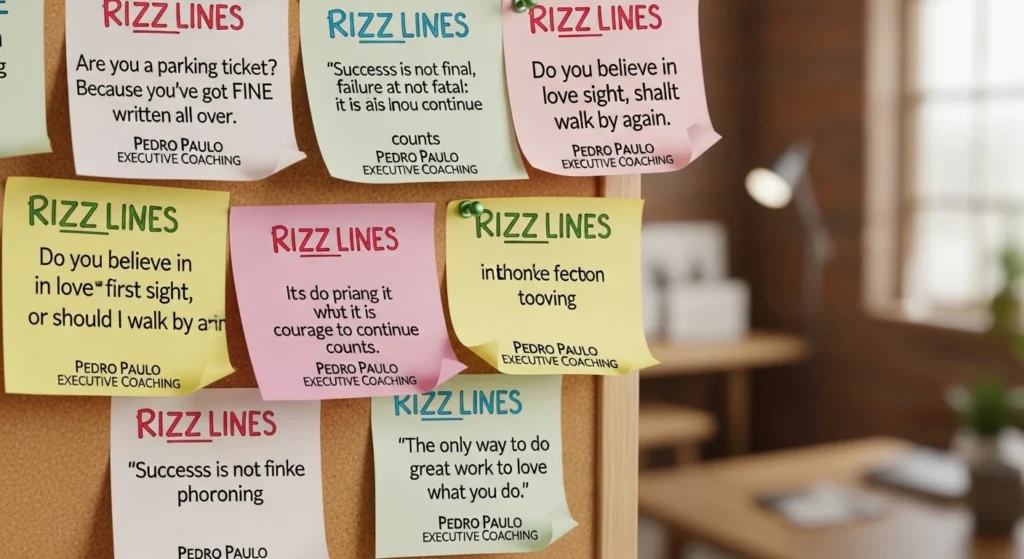 RIZZ LINES
Are you a parking ticket?
Because you've got FINE
written all over.
PEDRO PAULO
EXECUTIVE COACHING
RIZZ LINES
"Successs is not final,
failure at not fatal:
it is ais lnou continue
counts
PEDRO PAULO
EXECUTIVE COACHING
RIZZ LINES
Do you believe in
love sight, shalt
walk by again.
PEDRO PAULO
EXECUTIVE COACHING
RIZZ LINES
Do you believe in
in love first sight,
or should I walk by
PEDRO PAULO
EXECUTIVE COACHING
RIZZ LINES
Its do priang it
what it is
courage to continue
counts.
PEDRO PAULO
EXECUTIVE COACHING
RIZZ LINES
inthonke fecton
tooving
PEDRO PAULO
EXECUTIVE COACHING
RIZZ LINES
"Successs is not finke
phoroning
PEDRO PAULO
RIZZ LINES
"The only way to do
great work to love
what you do."
PEDRO PAULO
EXECUTIVE COACHING